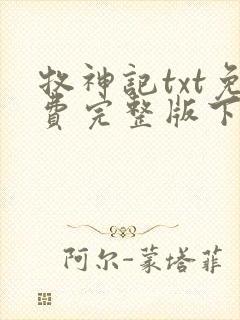 牧神記txt免
費完整版下
阿尔-蒙塔菲